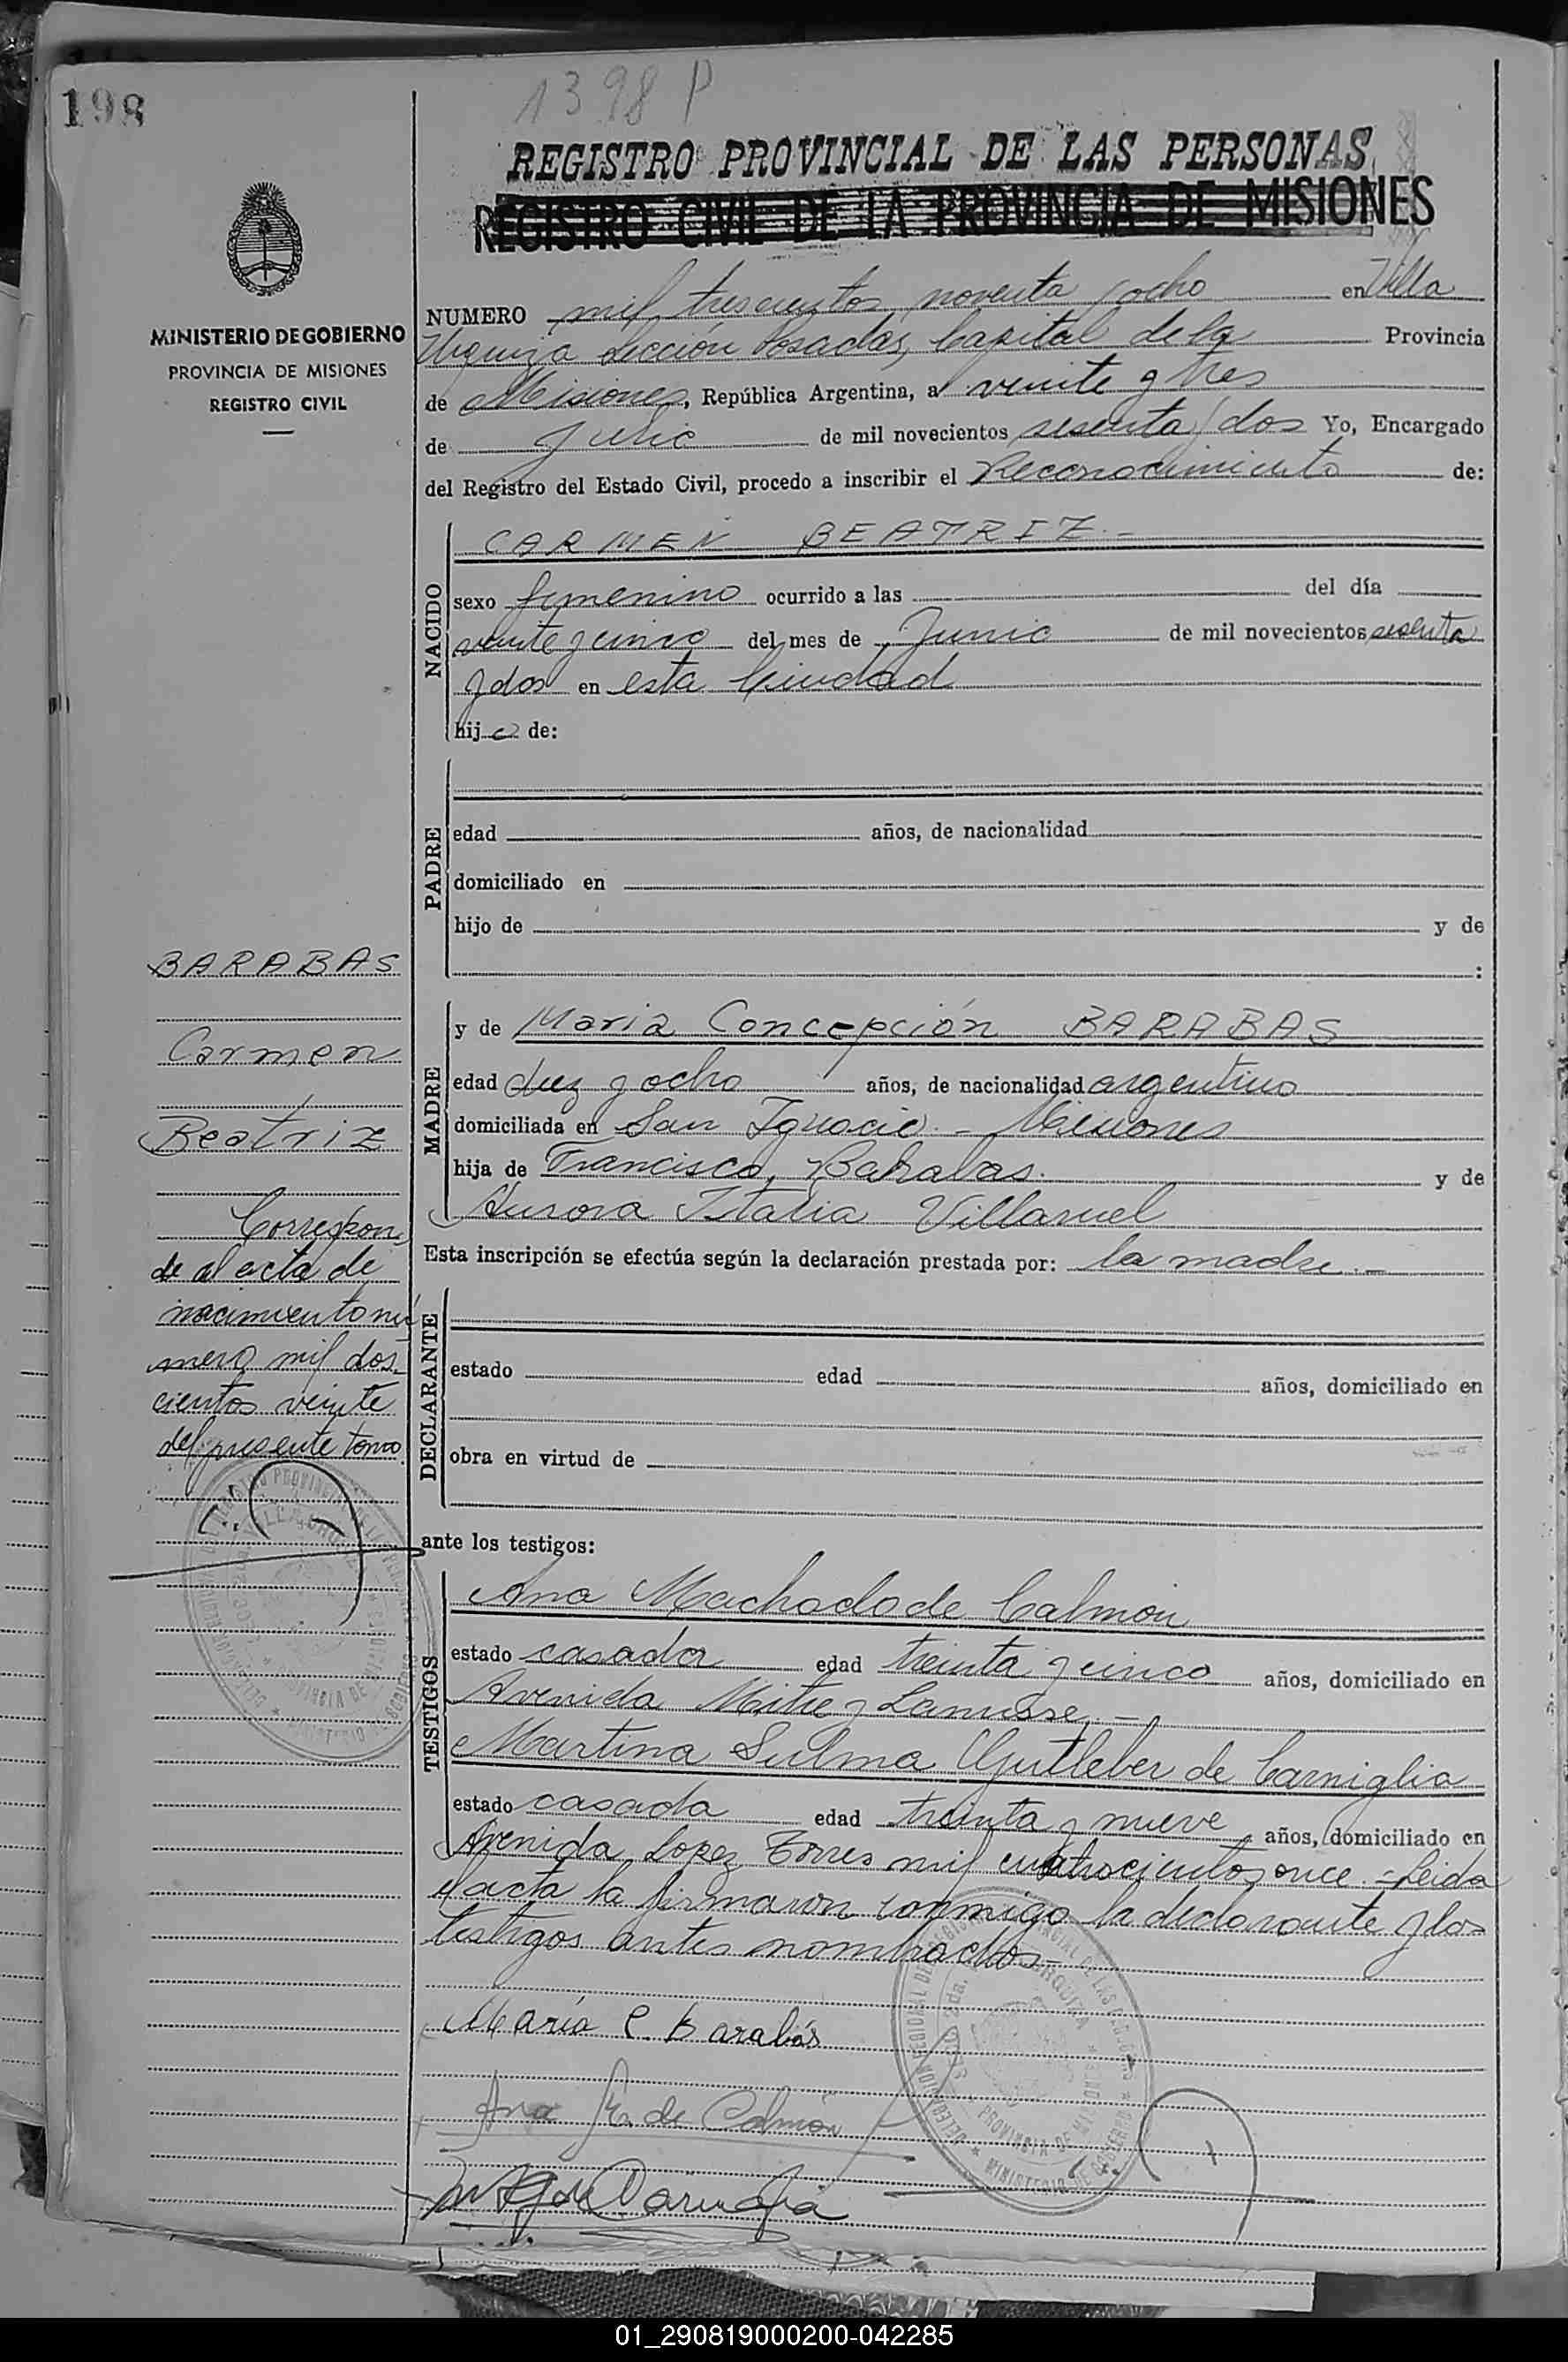 198
1398 P
REGISTRO PROVINCIAL DE LAS PERSONAS
REGISTRO CIVIL DE LA PROVINCIA DE MISIONES
MINISTERIO DE GOBIERNO
PROVINCIA DE MISIONES
REGISTRO CIVIL
NUMERO mil trescientos noventa y ocho en Villa
Urquiza sección Posadas, Capital de la Provincia
de Misiones, República Argentina, a veinte y tres
de Julio de mil novecientos sesenta y dos Yo, Encargado
del Registro del Estado Civil, procedo a inscribir el Reconocimiento de:
NACIDO
CARMEN BEATRIZ.-
sexo femenino ocurrido a las del día
veinte y cinco del mes de Junio de mil novecientos sesenta
y dos en esta Ciudad
hija de:
PADRE
edad años, de nacionalidad
domiciliado en
hijo de y de
:
BARABAS
Carmen
Beatriz
Correspon
de al acta de
nacimiento nú
mero mil dos-
cientos veinte
del presente tomo
MADRE
y de Maria Concepción BARABAS
edad diez y ocho años, de nacionalidad argentina
domiciliada en San Ignacio - Misiones
hija de Francisco Barabas. y de
Aurora Italia Villaruel
Esta inscripción se efectúa según la declaración prestada por: la madre.-
DECLARANTE
estado edad años, domiciliado en
obra en virtud de
ante los testigos:
TESTIGOS
Ana Machado de Calmon
estado casada edad treinta y cinco años, domiciliado en
Avenida Mitre y Lanusse.-
Martina Sulma Gutleber de Carniglia
estado casada edad treinta y nueve años, domiciliado en
Avenida Lopez Torres mil cuatrocientos once.- Leida
el acta la firmaron conmigo la declarante y los
testigos antes nombrados.-
María C. Barabás
Ana M. de Calmón
PROVINCIA DE MISIONES
01_290819000200-042285